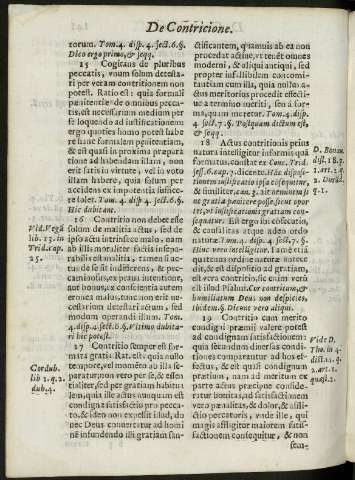 De Contricione.
torum. Tom.4. disp.4. sect.6.§.
Dico ergo primo, & seqq.
15 Cogitans de pluribus
peccatis, vnum solum detesta-
ri per veram contritionem non
potest. Ratio est: quia formalis
pœnitentiæ de omnibus pecca-
tis, est necessarium medium per
se loquendo ad iustificationem:
ergo quoties homo potest habe
re hanc formalem pœnitentiam,
& est quasi in proxima præpara
tione ad habendam illam, non
erit satis in virtute, vel in voto
illam habere, quia solum per
accidens ex impotentia suffice-
re solet. Tom.4. disp.4. sect.6.§.
Hic dubitant.
16 Contritio non debet esse
solum de malitia actus, sed de
ipso actu intrinsece malo, nam
ab illis moraliter factis insepa-
rabilis est malitia, tamen si ac-
tus de se sit indifferens, & pec-
caminosus, ex praua intentione,
aut bonus, ex conscientia autem
erronea malus, tunc non erit ne-
cessarium detestandi illum, sed
modum operandi illum. Tom.
4. disp.4. sect.6.§. Vltimo dubita-
ri hic potest.
17 Contritio semper est for-
mata gratia. Rat. est: quia nullo
tempore, vel momento ab illa se-
paratur in vero per se, & essen
tialiter, sed per gratiam habitua-
lem, quia ille actus vnus non est
condigna satisfactio pro pecca-
to, & idem non expellit illud, do
nec Deus conuertatur ad homi
nẽ infundendo illi gratiam san-
Vid. Vegã
lib. 13. in
Trid. cap.
25.
Cordub.
lib. 1. q. 2.
dub. 4.
ctificantem, quamuis ab ea non
procedat actiue, vt tenẽt omnes
moderni, & aliqui antiqui, sed
propter infallibilem concomi-
tantiam cum illa, quia nullo a-
deo meritorius procedit effecti-
ue a termino meriti, seu a for-
ma, quam meretur. Tom.4. disp.
4. sect.7.§. Postquam dictum est,
& seqq.
18 Actus contritionis prius
natura intelligitur informis quã
formatus. constat ex Conc. Trid.
sess.6. cap.7. dicente. Hãc disposi-
tionem iustificatio ipsa consequitur,
& similiter, can.3. ait neminem si-
ne gratia pœnitere posse sicut opor
tet, vt iustificationis gratiam con-
sequatur. Est ergo ibi consecutio,
& causalitas atque adeo ordo
naturæ. Tom.4. disp.4. sect.7.§.
Hinc vero intelligitur. Tame etiã
quatenus ordine naturæ antece-
dit, & est dispositio ad gratiam,
est vera contritio: sic enim vera
est illud Psalmi. Cor contritum, &
humiliatum Deus non despicies,
ibidem.§. Dicunt vero aliqui.
19 Contritio cum merito
condigni præmij valere potest
ad condignam satisfactionem:
quia secundum diuersas condi-
tiones comparantur ad hos ef-
fectus, & est quasi condignum
præmium, nam ad meritum ex
parte actus præcipue conside-
ratur bonitas, ad satisfactionem
vero pœnalitas, & dolor, & affli-
ctio peccatoris, vnde ille, qui
magis affligit maiorem satis-
factionem consequitur, & non
sem-
D. Bonau.
dist. 18. p.
2. art. 1. q.
2. Durãd.
q. 1.
Vide D.
Tho. in 4.
dist. 15. q.
2. art. 1.
quæst. 2.